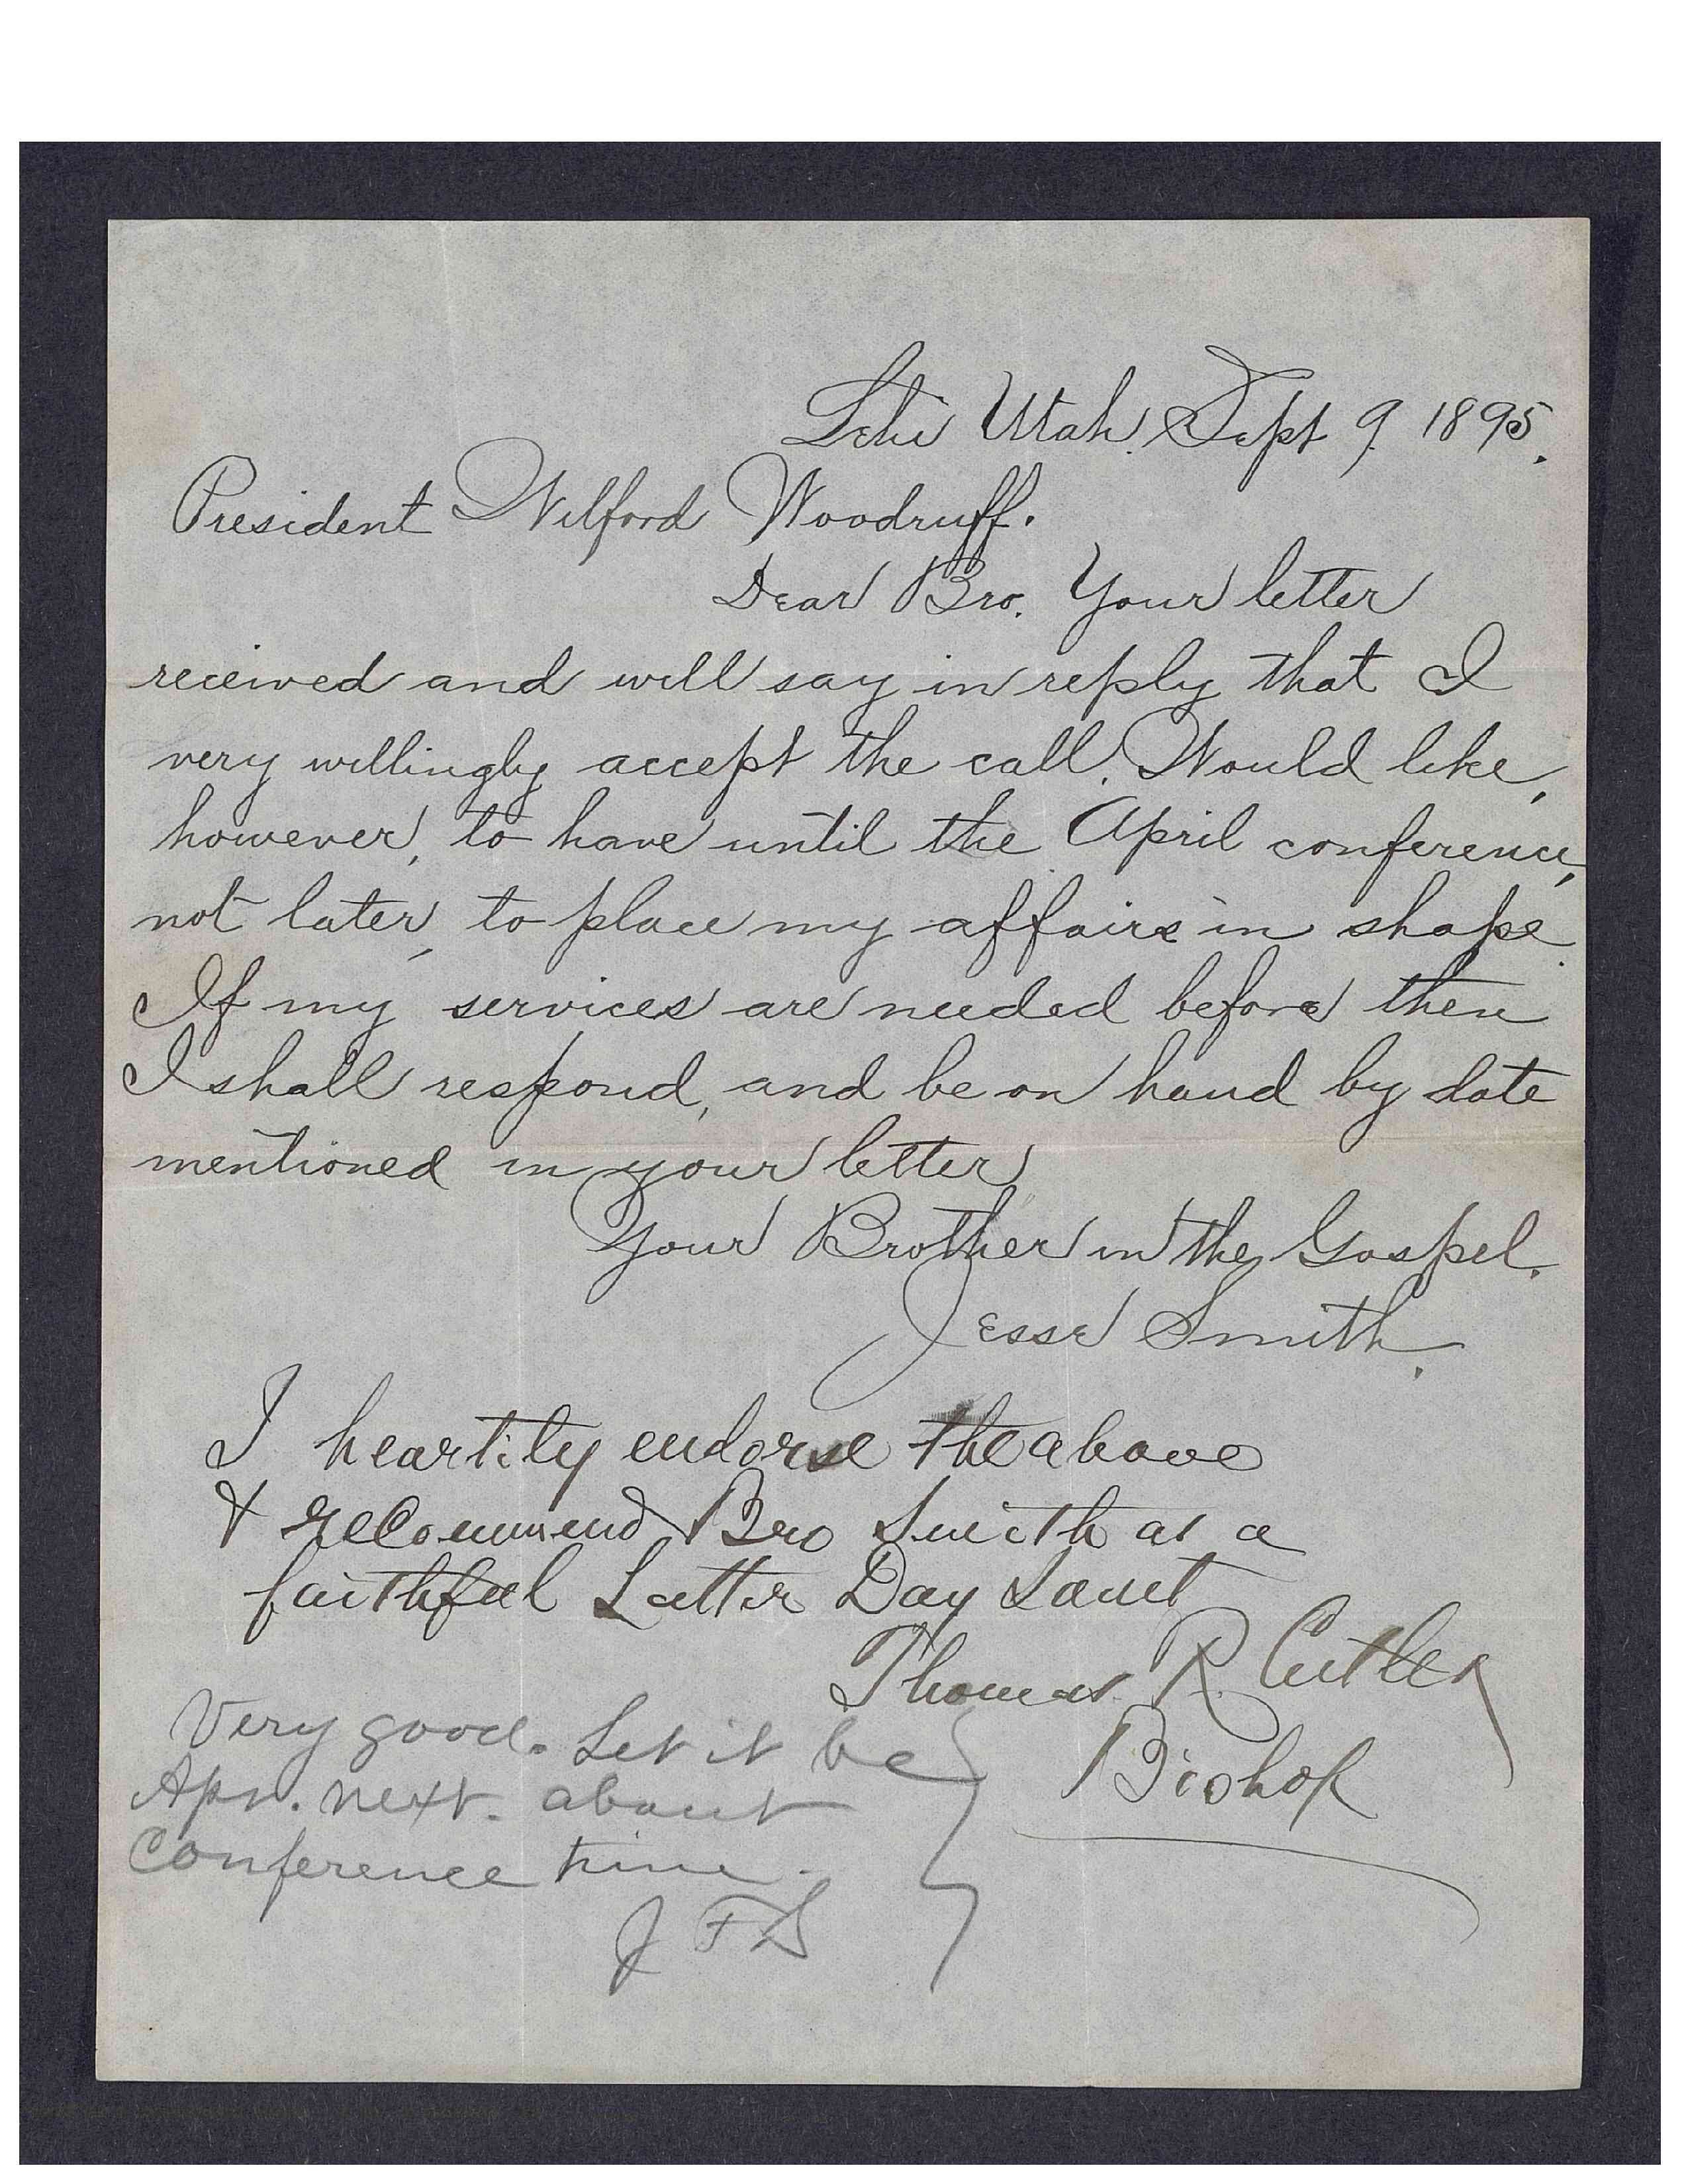 Lehi Utah. Sept 9. 1895.
President Wilford Woodruff.
Dear Bro. Your letter
received and will say in reply that I
very willingly accept the call. Would like,
however, to have until the April conference,
not later, to place my affairs in shape.
If my services are needed before then
I shall respond, and be on hand by date
mentioned in your letter
Your Brother in the Gospel.
Jesse Smith.
I heartily endorse the above
& recommend Bro Smith as a
faithful Latter Day Saint
Thomas R. Cutler
Bishop
Very good. Let it be
Apr. next. about
Conference time.
J F S